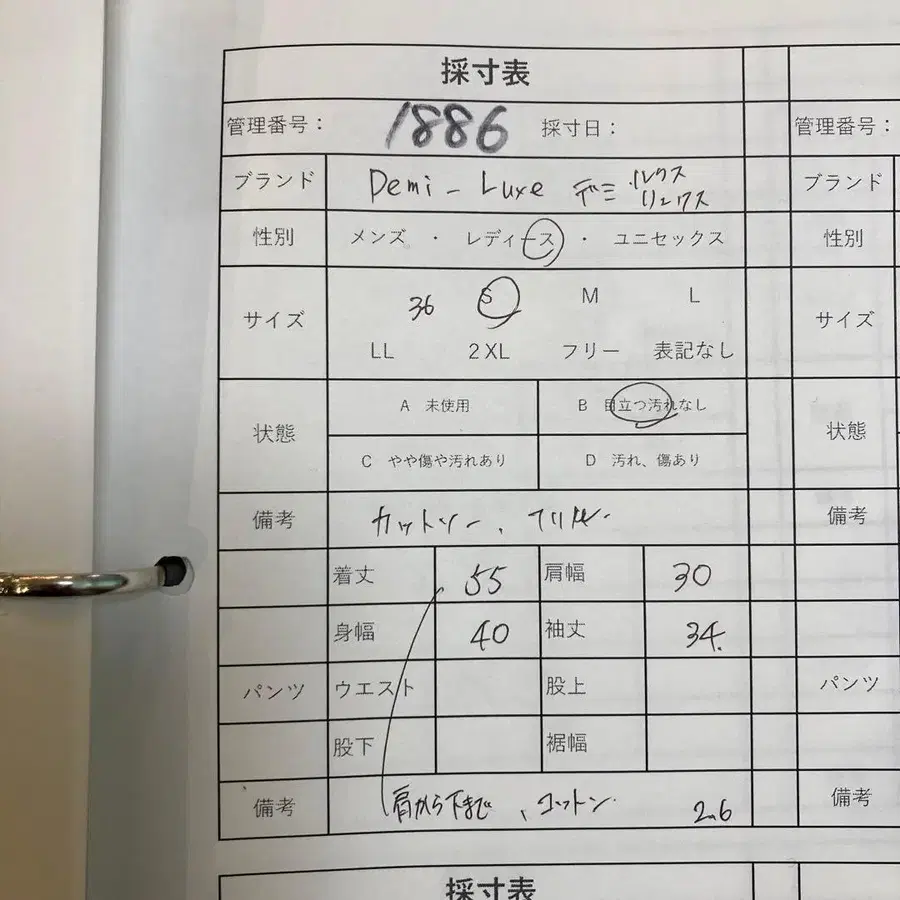 採寸表
管理番号： 1886 採寸日： 管理番号：
ブランド Demi-Luxe デミ ルクス リュクス ブランド
性別 メンズ ・ レディース ・ ユニセックス 性別
サイズ 36 S M L サイズ
LL 2XL フリー 表記なし
状態 A 未使用 B 目立つ汚れなし 状態
C やや傷や汚れあり D 汚れ、傷あり
備考 カットソー、フリル 備考
着丈 55 肩幅 30
身幅 40 袖丈 34.
パンツ ウエスト 股上 パンツ
股下 裾幅
備考 肩から下まで、コットン 2.6 備考
採寸表